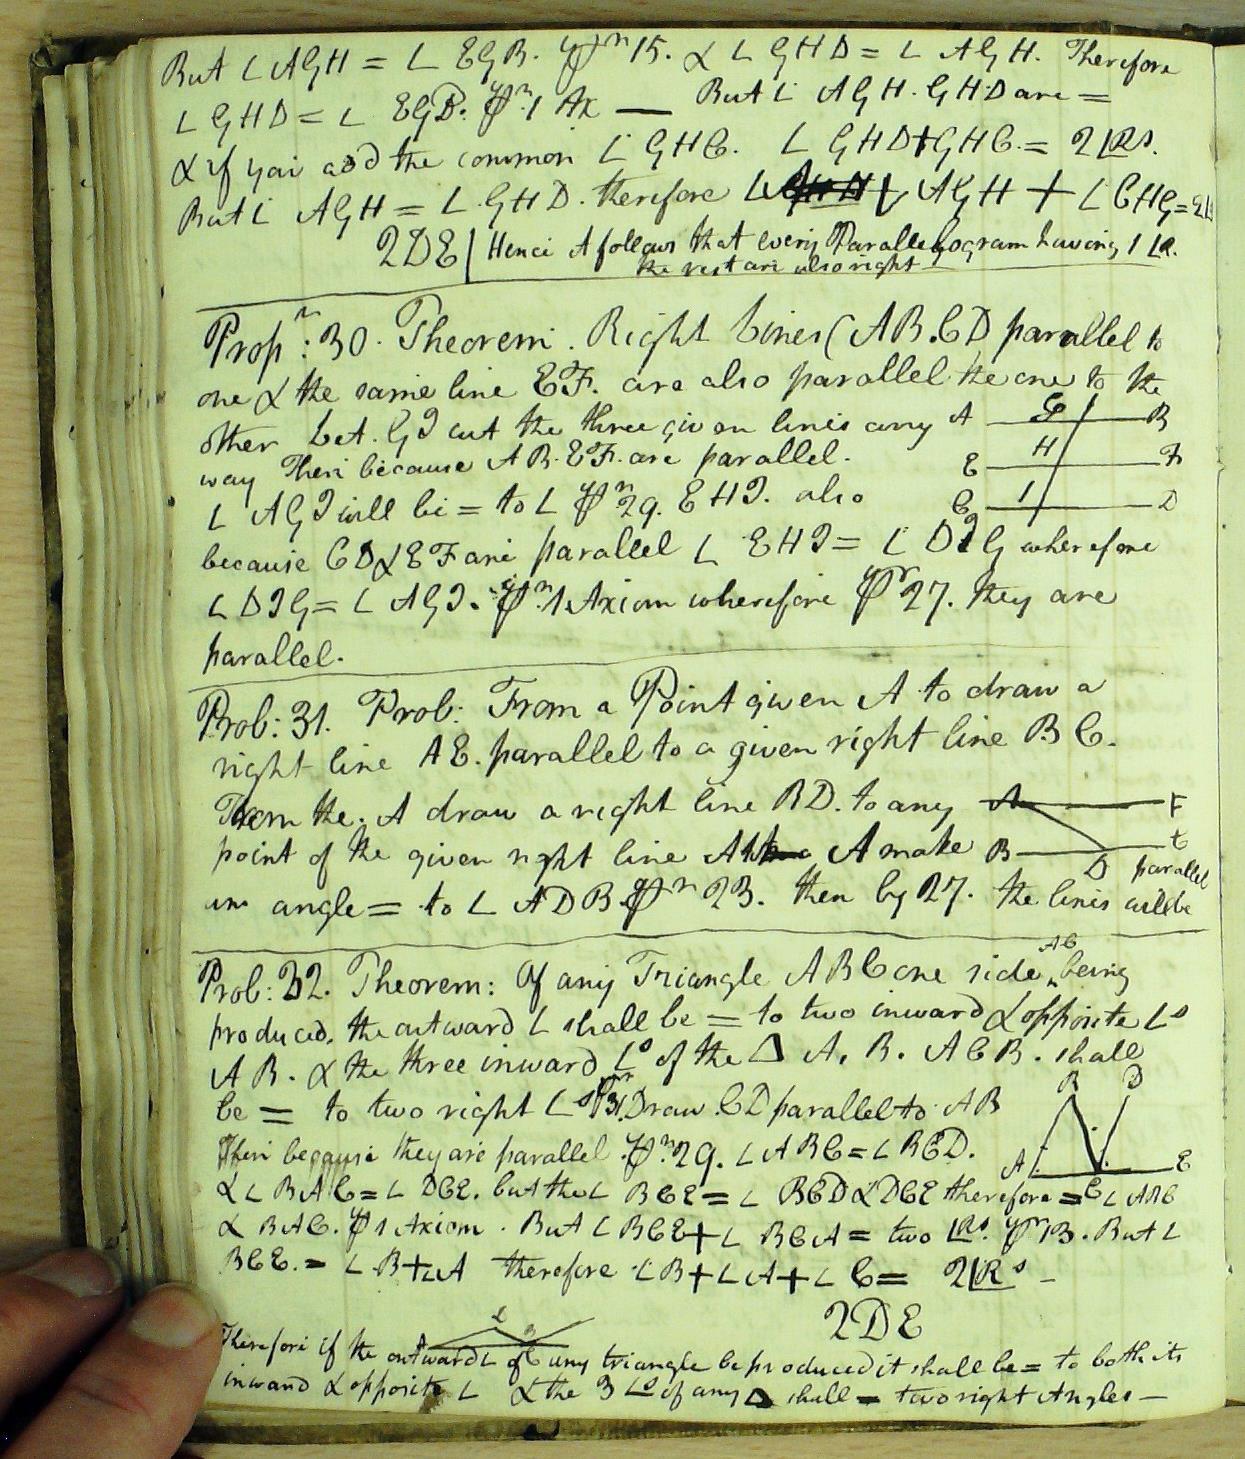 But ∠ AGH = ∠ EGB. Pr n 15. & ∠ GHD = ∠ AGH. Therefore
∠ GHD = ∠ EGB. Pr n 1 Ax — But ∠ AGH. GHD are =
& if you add the common ∠ GHC. ∠ GHD + GHC. = 2 ∟Rs.
But ∠ AGH = ∠ GHD. therefore ∠ AGH + ∠ CHG = 2∟
2DE | Hence it follows that every Parallelogram having 1 ∟R.
the rest are also right
Prop n: 30. Theorem. Right Lines (AB. CD parallel to
one & the same line EF. are also parallel the one to the
other Let. GI cut the three given lines any
way Then because AB. EF. are parallel.
∠ AGI will be = to ∠ Pr n 29. EHI. also
because CD & EF are parallel ∠ EHI = ∠ DIG wherefore
∠ DIG = ∠ AGI. Pr n 1 Axiom wherefore Pr 27. they are
parallel.
A G B
E H F
C I D
Prob: 31. Prob: From a Point given A to draw a
right line AE. parallel to a given right line BC.
From the. A draw a right line BD. to any
point of the given right line A make
an angle = to ∠ ADB Pr n 23. then by 27. the lines will be
parallel
A F
B D C
Prob: 32. Theorem: Of any Triangle ABC one side AC being
produced, the outward ∠ shall be = to two inward & opposite ∠s
AB. & the three inward ∠s of the Δ A, B. ACB. shall
be = to two right ∠s Pr n 31. Draw CD parallel to AB
Then because they are parallel Pr n 29. ∠ ABC = ∠ BCD.
& ∠ BAC = ∠ DCE. but the ∠ BCE = ∠ BCD & DCE therefore = ∠ ABC
& BAC. Pr 1 Axiom. But ∠ BCE + ∠ BCA = two ∟Rs. Pr 13. But ∠
BCE. = ∠ B + ∠ A therefore ∠ B + ∠ A + ∠ C = 2∟Rs –
2DE
B D
A C E
Therefore if the outward ∠ of any triangle be produced it shall be = to both its
inward & opposite ∠ & the 3 ∠s of any Δ shall = two right Angles —